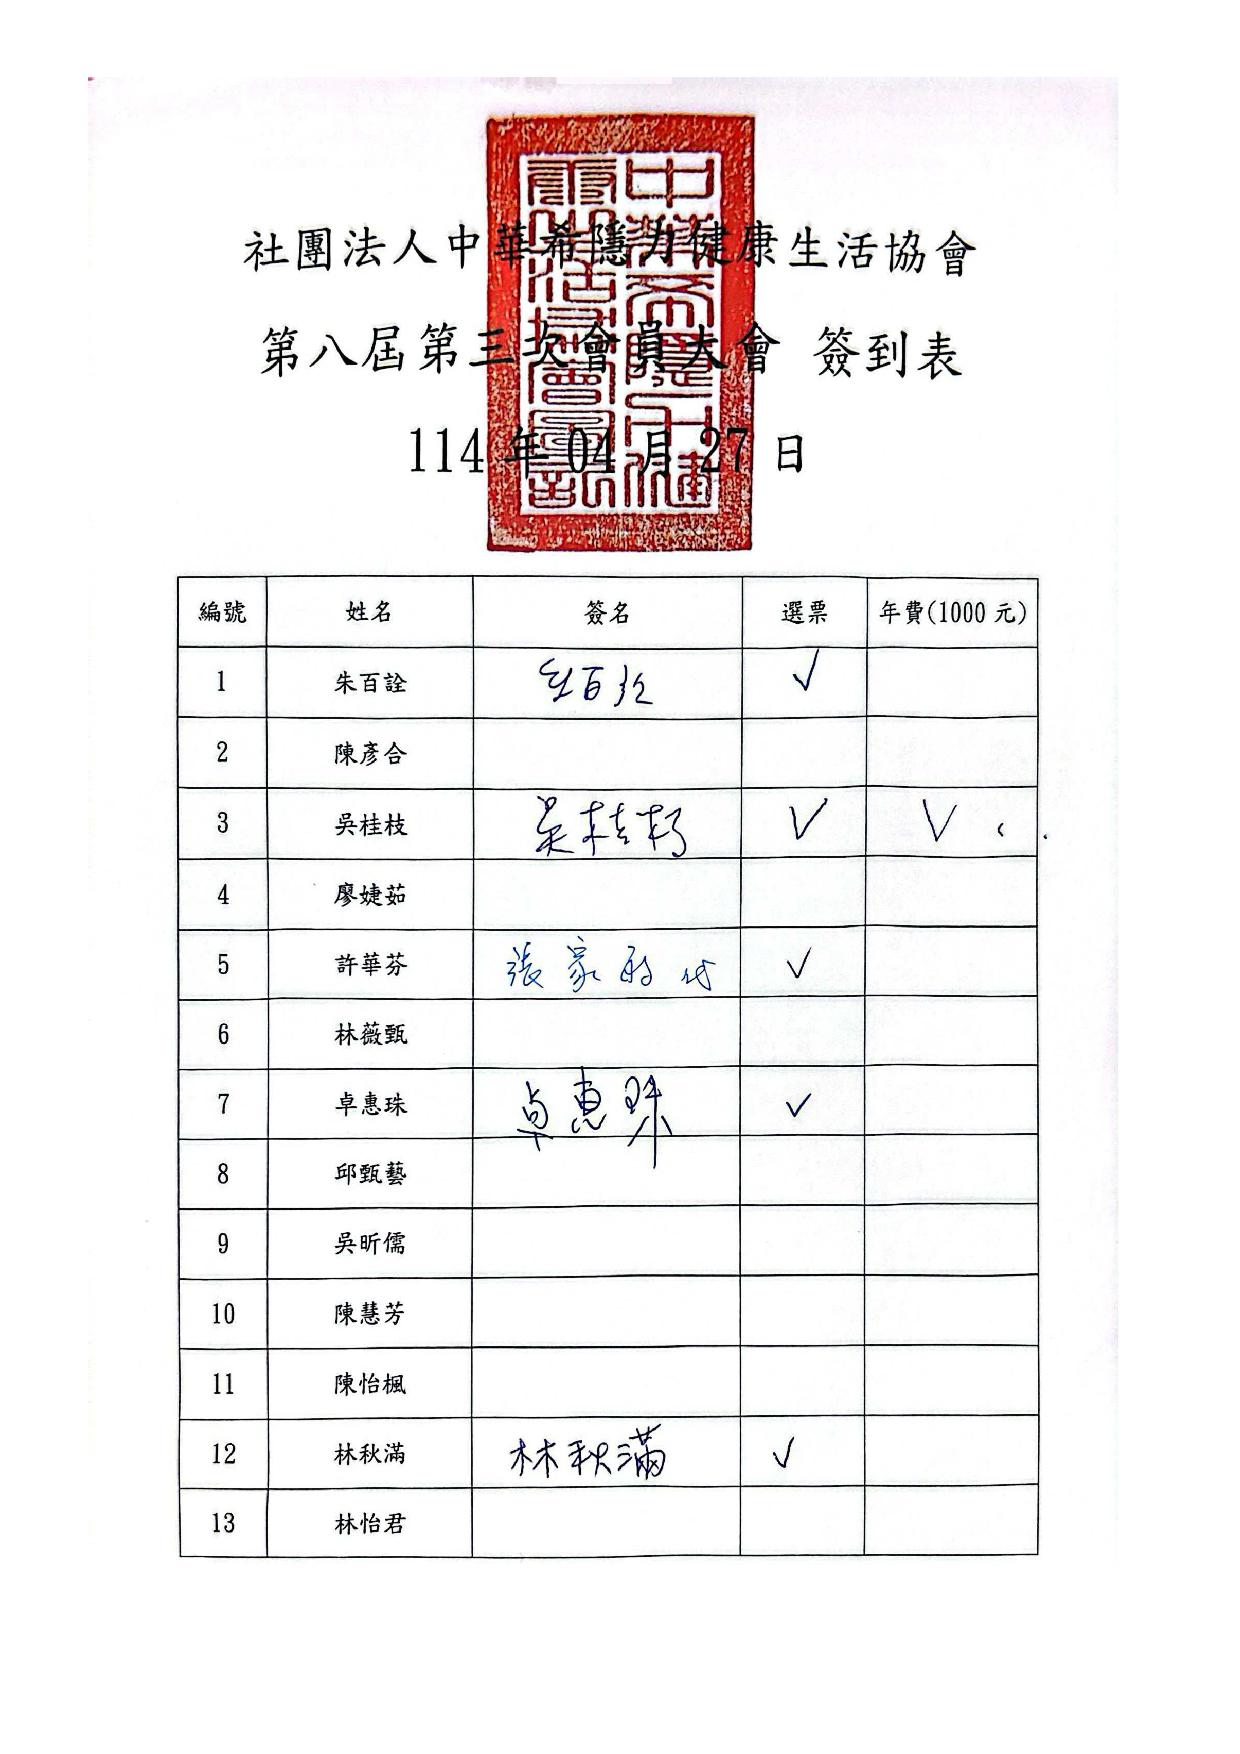 社團法人中華希隱力健康生活協會
第八屆第三次會員大會 簽到表
114年04月27日
編號 姓名 簽名 選票 年費(1000元)
1 朱百詮 朱百詮 ✓
2 陳彥合
3 吳桂枝 吳桂枝 ✓ ✓
4 廖婕茹
5 許華芬 張家 代 ✓
6 林薇甄
7 卓惠珠 卓惠珠 ✓
8 邱甄藝
9 吳昕儒
10 陳慧芳
11 陳怡楓
12 林秋滿 林秋滿 ✓
13 林怡君